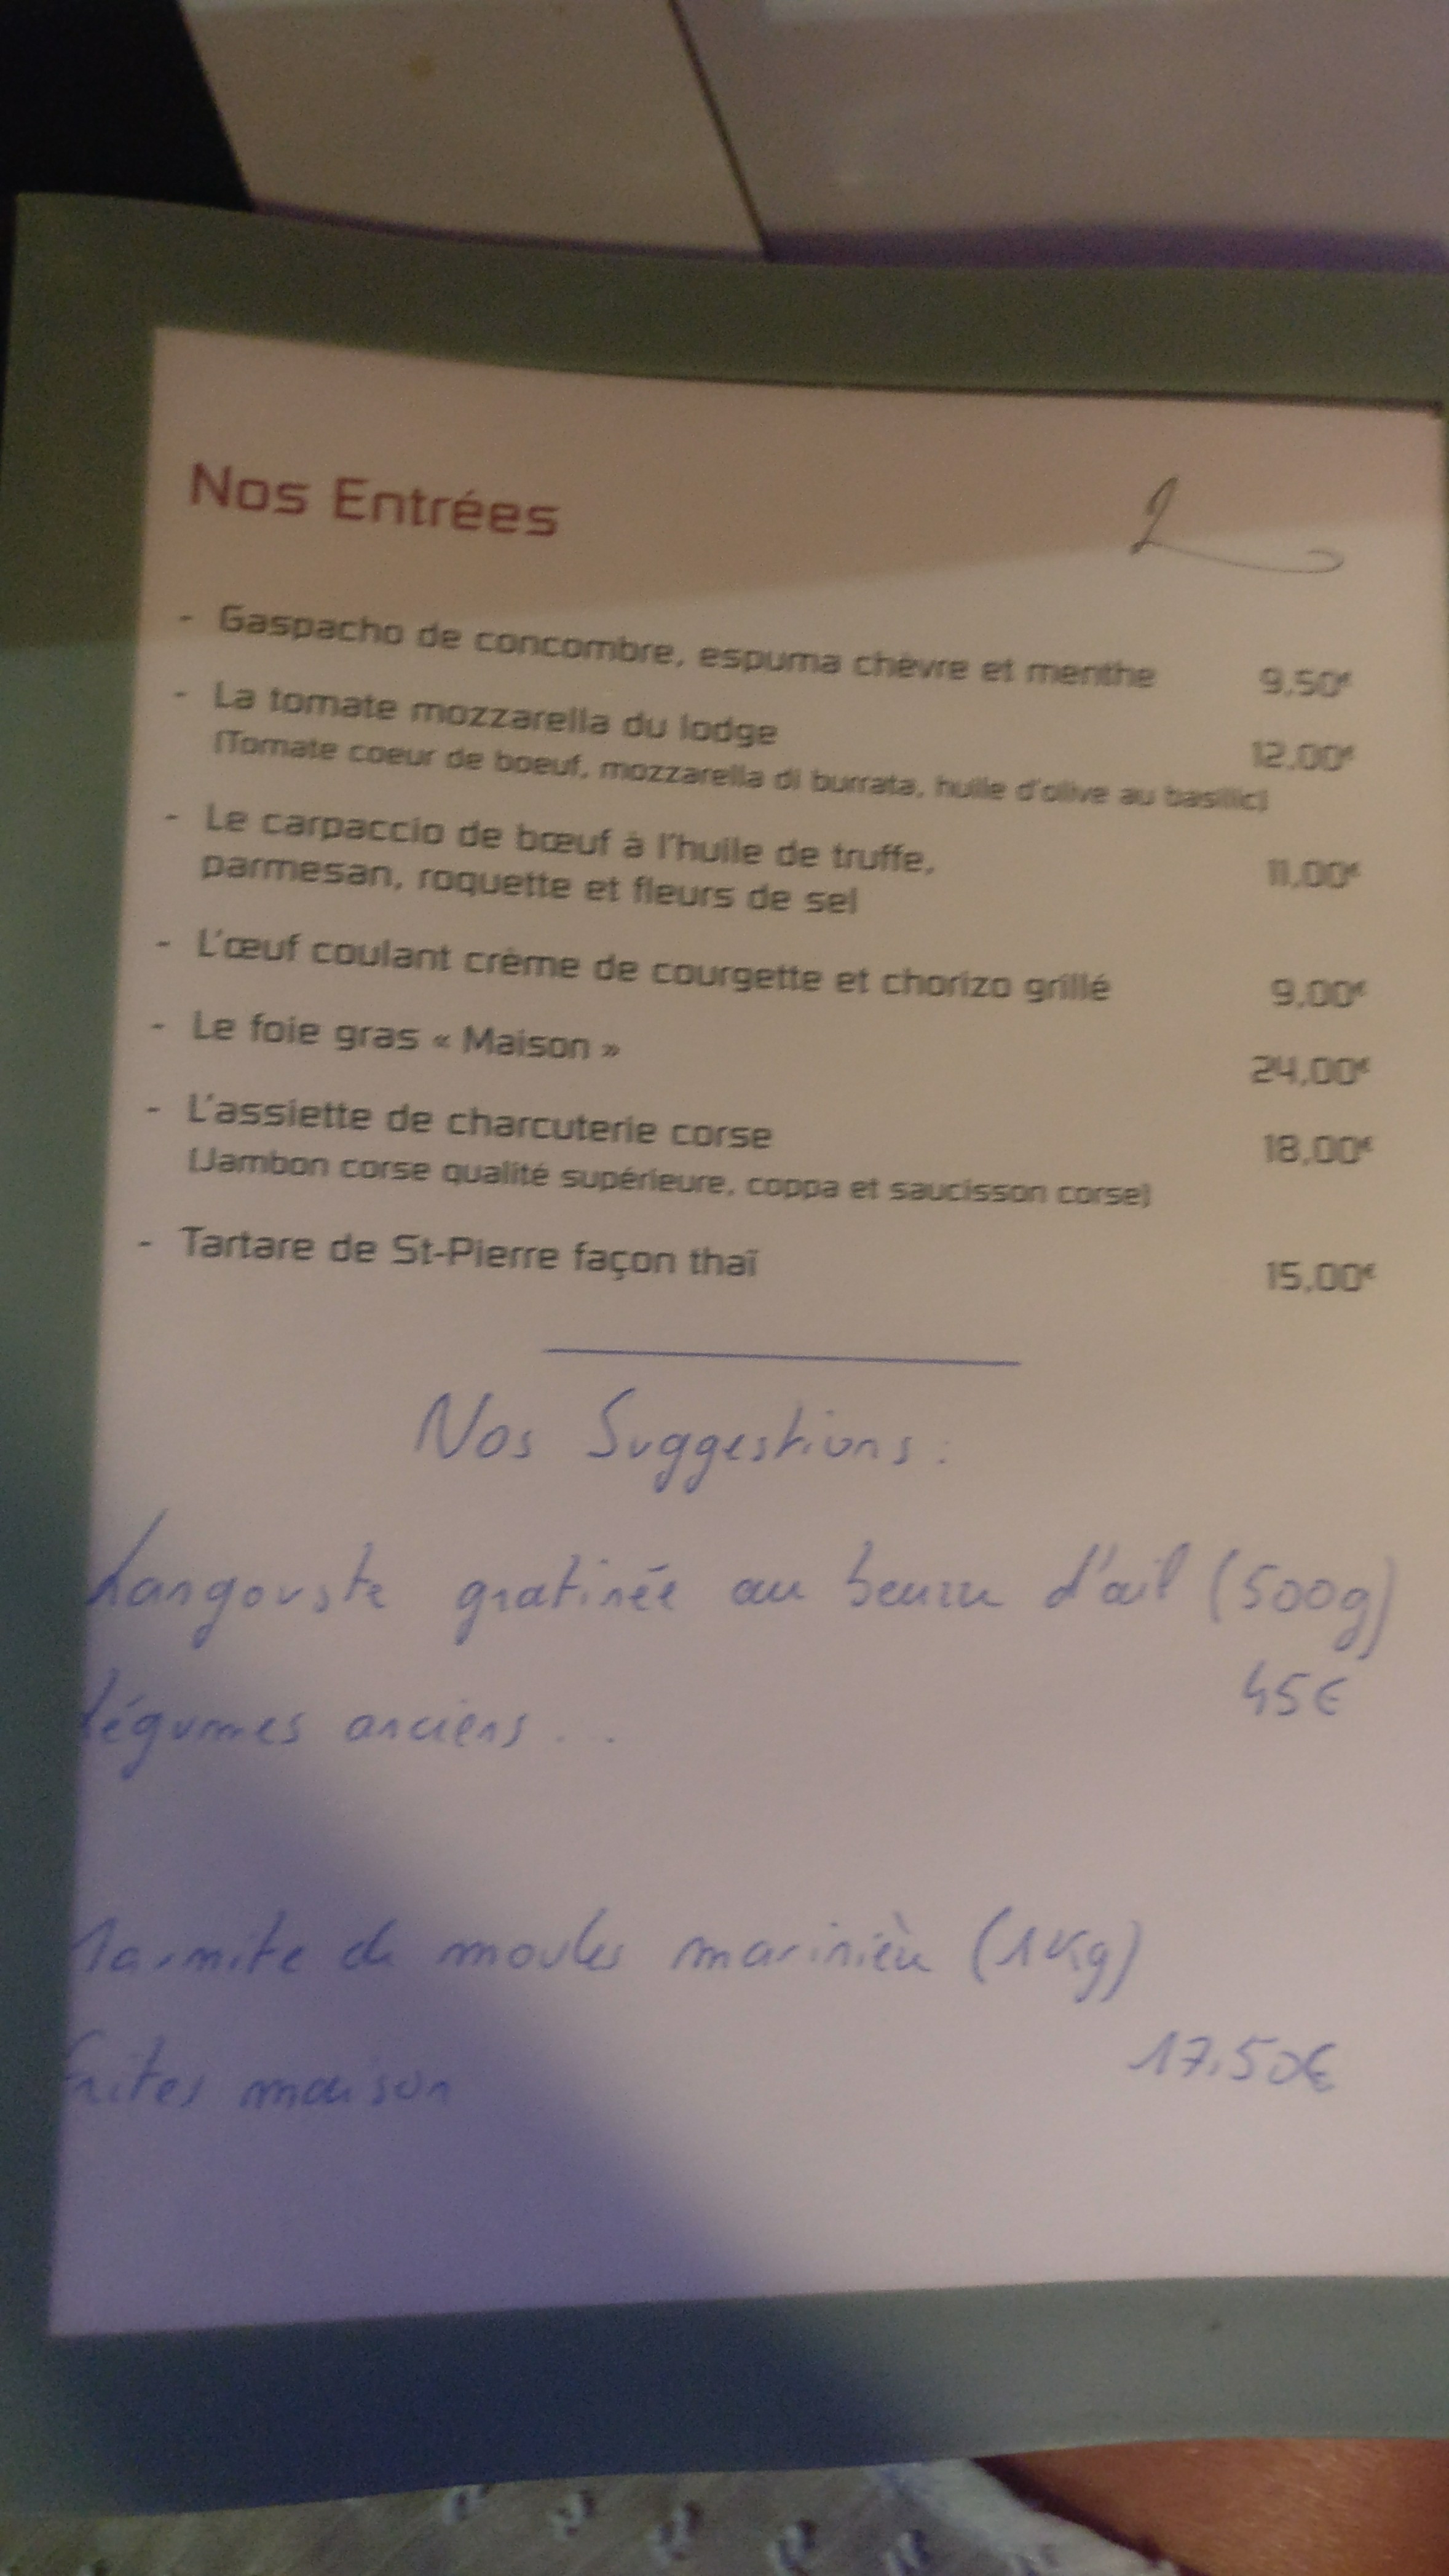 Nos Entrées
2
- Gaspacho de concombre, espuma chèvre et menthe 9,50€
- La tomate mozzarella du lodge 12,00€
(Tomate coeur de boeuf, mozzarella di burrata, huile d'olive au basilic)
- Le carpaccio de bœuf à l'huile de truffe, 11,00€
parmesan, roquette et fleurs de sel
- L'œuf coulant crème de courgette et chorizo grillé 9,00€
- Le foie gras « Maison » 24,00€
- L'assiette de charcuterie corse 18,00€
(Jambon corse qualité supérieure, coppa et saucisson corse)
- Tartare de St-Pierre façon thaï 15,00€
Nos Suggestions :
Langouste gratinée au beurre d'ail (500g)
45€
légumes anciens ...
Marmite de moules marinière (1Kg)
17,50€
frites maison